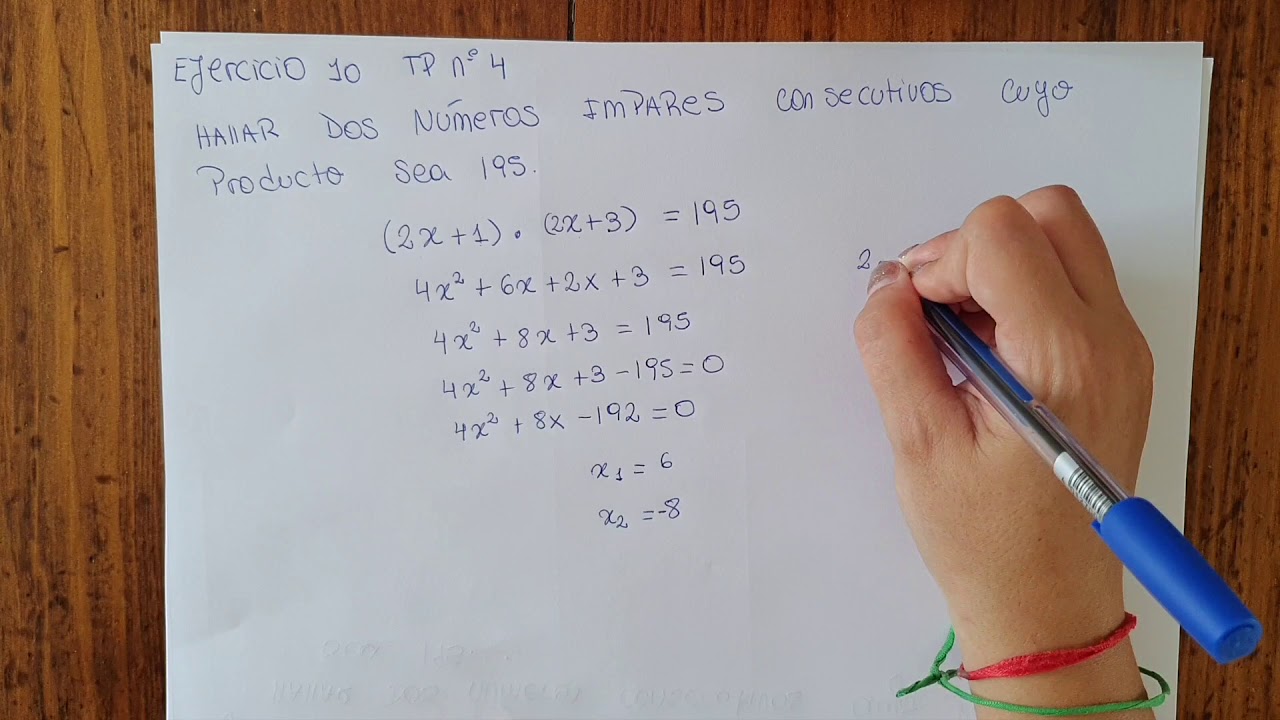 EJERCICIO 10 TP nº 4
HALLAR DOS NÚMEROS IMPARES consecutivos cuyo
Producto sea 195.
(2x+1) . (2x+3) = 195
4x² + 6x + 2x + 3 = 195
2
4x² + 8x + 3 = 195
4x² + 8x + 3 - 195 = 0
4x² + 8x - 192 = 0
x₁ = 6
x₂ = -8